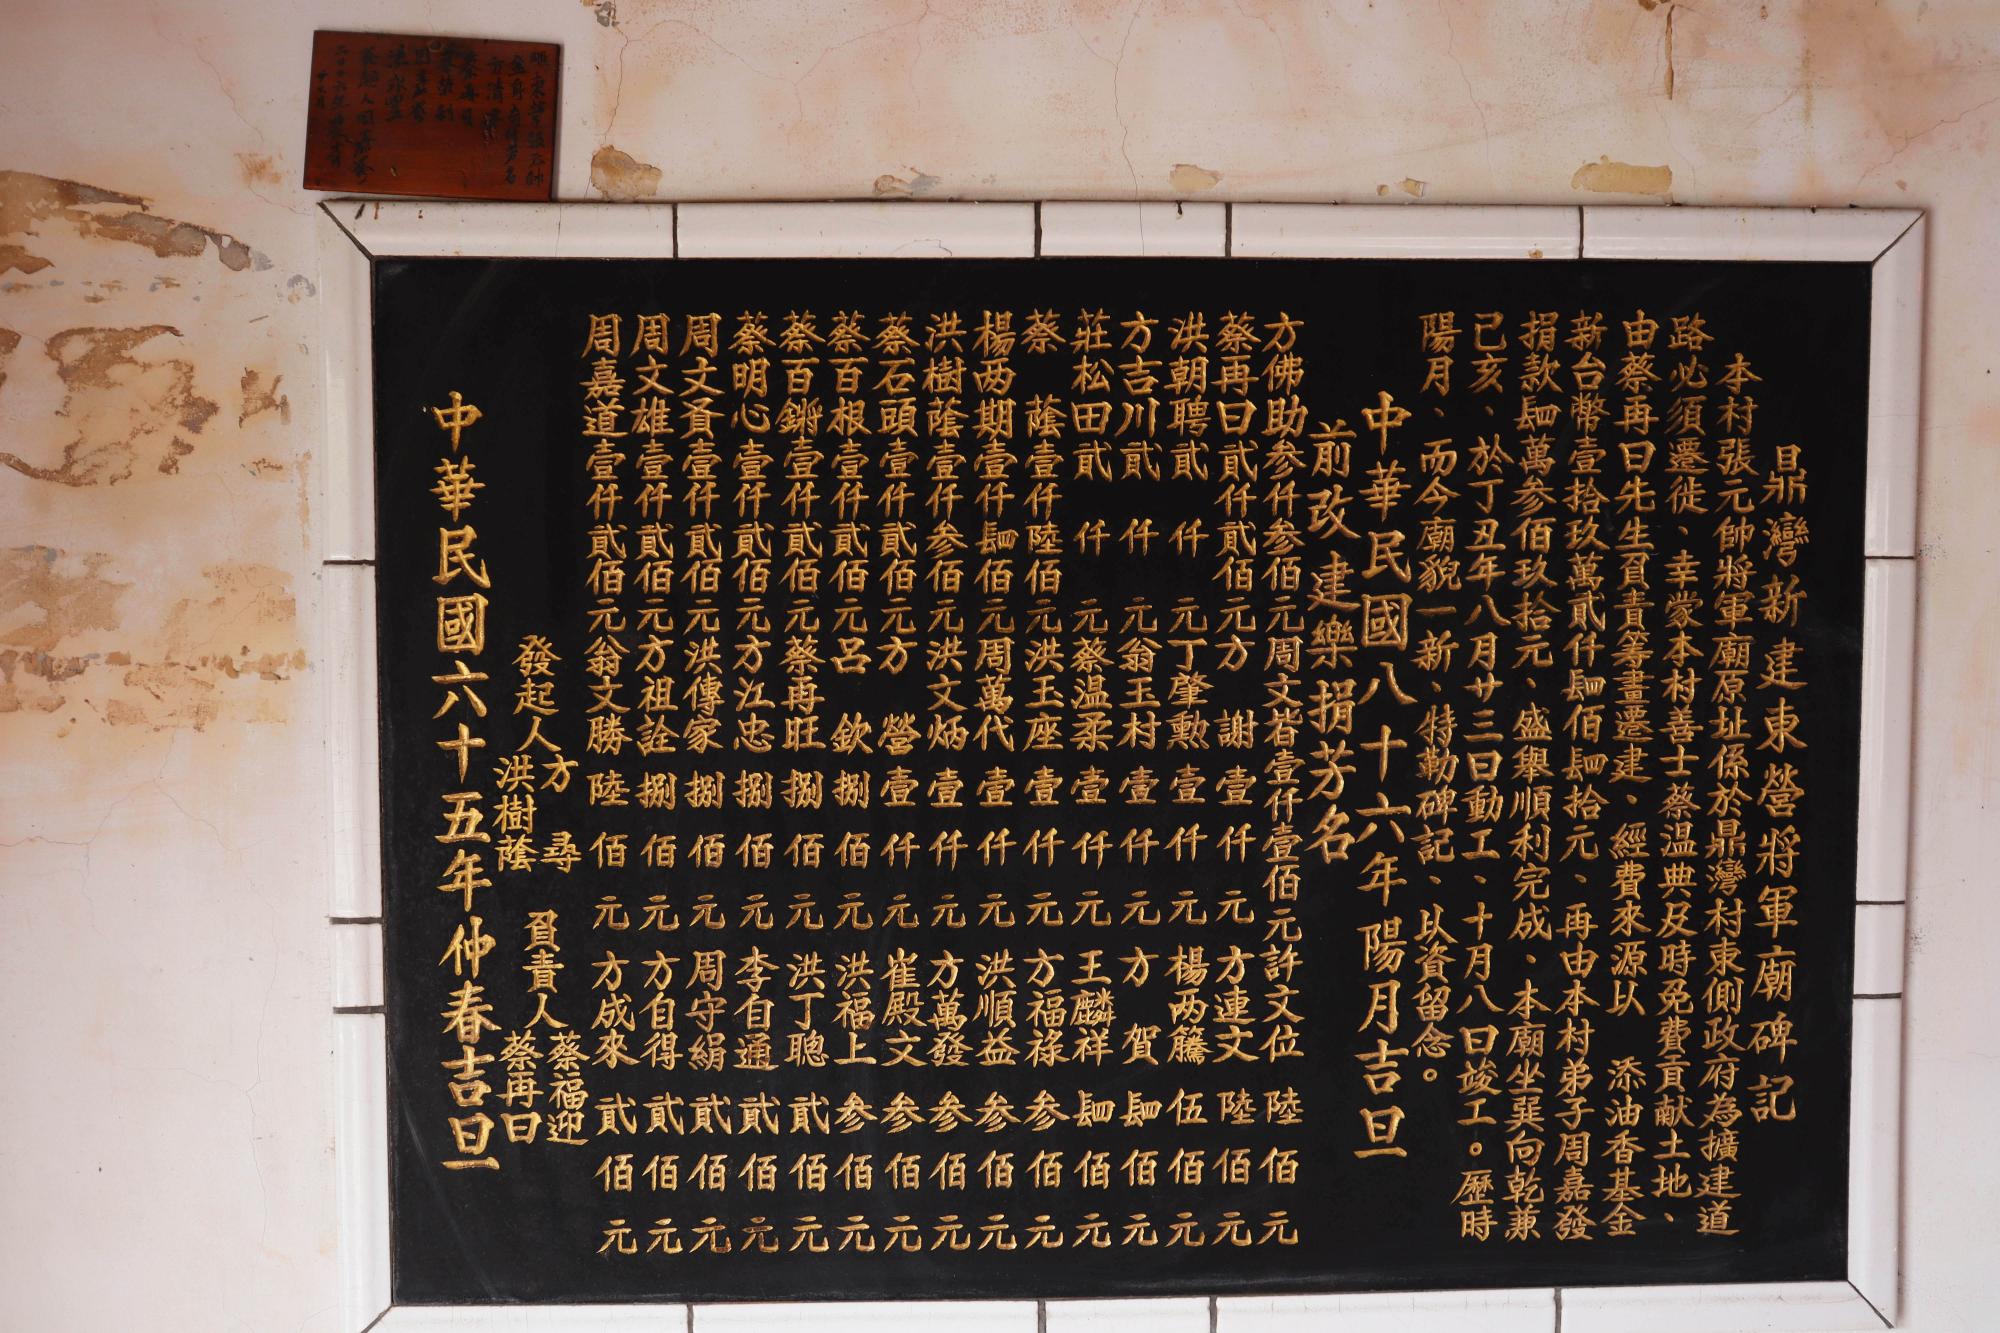 鼎灣新建東營將軍廟碑記
本村張元帥將軍廟原址係於鼎灣村東側政府為擴建道
路必須遷徙、幸蒙本村善士蔡温典及時免費貢献土地、
由蔡再日先生負責筹畫遷建、經費來源以 添油香基金
新台幣壹拾玖萬貳仟肆佰肆拾元、再由本村弟子周嘉發
捐款肆萬参佰玖拾元、盛舉順利完成、本廟坐巽向乾兼
己亥、於丁丑年八月廿三日動工、十月八日竣工。歷時
陽月、而今廟貌一新、特勒碑記、以資留念。
中華民國八十六年陽月吉旦
前改建樂捐芳名
方佛助参仟参佰元周文皆壹仟壹佰元許文位陸佰元
蔡再日貳仟貳佰元方 謝壹仟元方連文陸佰元
洪朝聘貳仟元丁肇勲壹仟元楊两騰伍佰元
方吉川貳仟元翁玉村壹仟元方 賀肆佰元
莊松田貳仟元蔡温柔壹仟元王麟祥肆佰元
蔡 蔭壹仟陸佰元洪玉座壹仟元方福祿参佰元
楊两期壹仟肆佰元周萬代壹仟元洪順益参佰元
洪樹蔭壹仟参佰元洪文炳壹仟元方萬發参佰元
蔡石頭壹仟貳佰元方 營壹仟元崔殿文参佰元
蔡百根壹仟貳佰元呂 欽捌佰元洪福上参佰元
蔡百鏘壹仟貳佰元蔡再旺捌佰元洪丁聰貳佰元
蔡明心壹仟貳佰元方江忠捌佰元李自通貳佰元
周文貟壹仟貳佰元洪傳家捌佰元周守絹貳佰元
周文雄壹仟貳佰元方祖詮捌佰元方自得貳佰元
周嘉道壹仟貳佰元翁文勝陸佰元方成來貳佰元
發起人方 尋
洪樹蔭
負責人蔡福迎
蔡再日
中華民國六十五年仲春吉旦